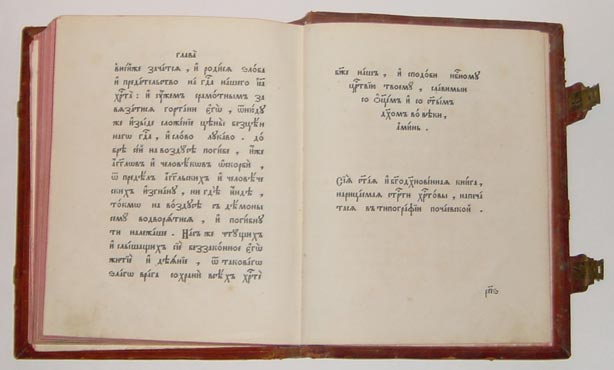 глава̀
внейже зачатся, и҆ родися ѕлоба
и҆ предателство на гд҇а нашего і҆и҃
хр҇та̀: и҆ ѹжемъ срамотнымъ за
вязатися гортани єгѡ̀, ѿнюду
же и҆зыде сложение цены безцен
наго гд҇а, и҆ слово лукаво. до
бре сей на воздусе погибе, и҆же
а҆гг҃ловъ и҆ человекωвъ ѡскорби,
ѿ предел а҆гг҃льскихъ и҆ человече
скихъ и҆згнану, ни где и҆нде,
токмо на воздусе съ демоны
сему водворятися, и҆ погибну
ти належаше. Насъ же чтущих
и҆ слышащихъ сие беззаконное єгѡ̀
житие и҆ деяние, ѿ таковагѡ
ѕлагѡ врага сохрани всехъ хр҇тѐ
бж҃е нашъ, и҆ сподоби нб҇ному
цр҇твию твоему, славимыи
со ѻ҆ц҃емъ и҆ со ст҃ымъ
дх҃омъ во веки,
а҆минь.
Сия ст҃ая и҆ бг҃одх҃новенная книга,
нарицаемая стр҇ти хр҇товы, напеча
тася въ типографии почаевской.
рп҃ѳ